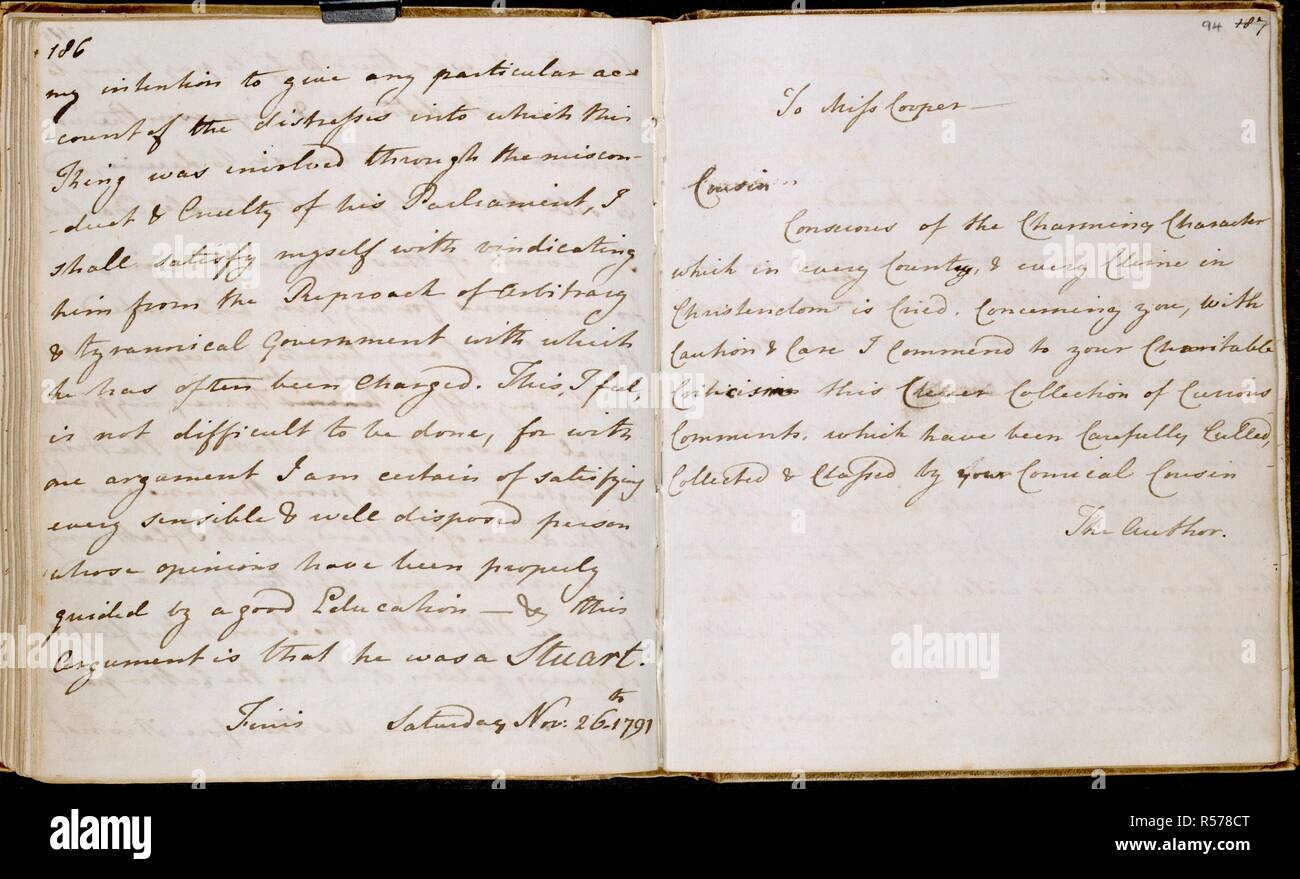 186
my intention to give any particular ac=
-count of the distresses into which this
King was involved through the miscon-
-duct & Cruelty of his Parliament, I
shall satisfy myself with vindicating
him from the Reproach of Arbitrary
& tyrannical Government with which
he has often been Charged. This, I feel,
is not difficult to be done, for with
one argument I am certain of satisfying
every sensible & well disposed person
whose opinions have been properly
guided by a good Education — & this
Argument is that he was a Stuart.
Finis Saturday Nov: 26th 1791
94 187
To Miss Cooper —
Cousin
Conscious of the Charming Character
which in every Country, & every Clime in
Christendom is Cried, Concerning you, with
Caution & Care I Commend to your Charitable
Criticism this Clever Collection of Curious
Comments, which have been Carefully Culled,
Collected & Classed by your Comical Cousin
The Author.
alamy
alamy
alamy
alamy
Image ID: R578CT
www.alamy.com